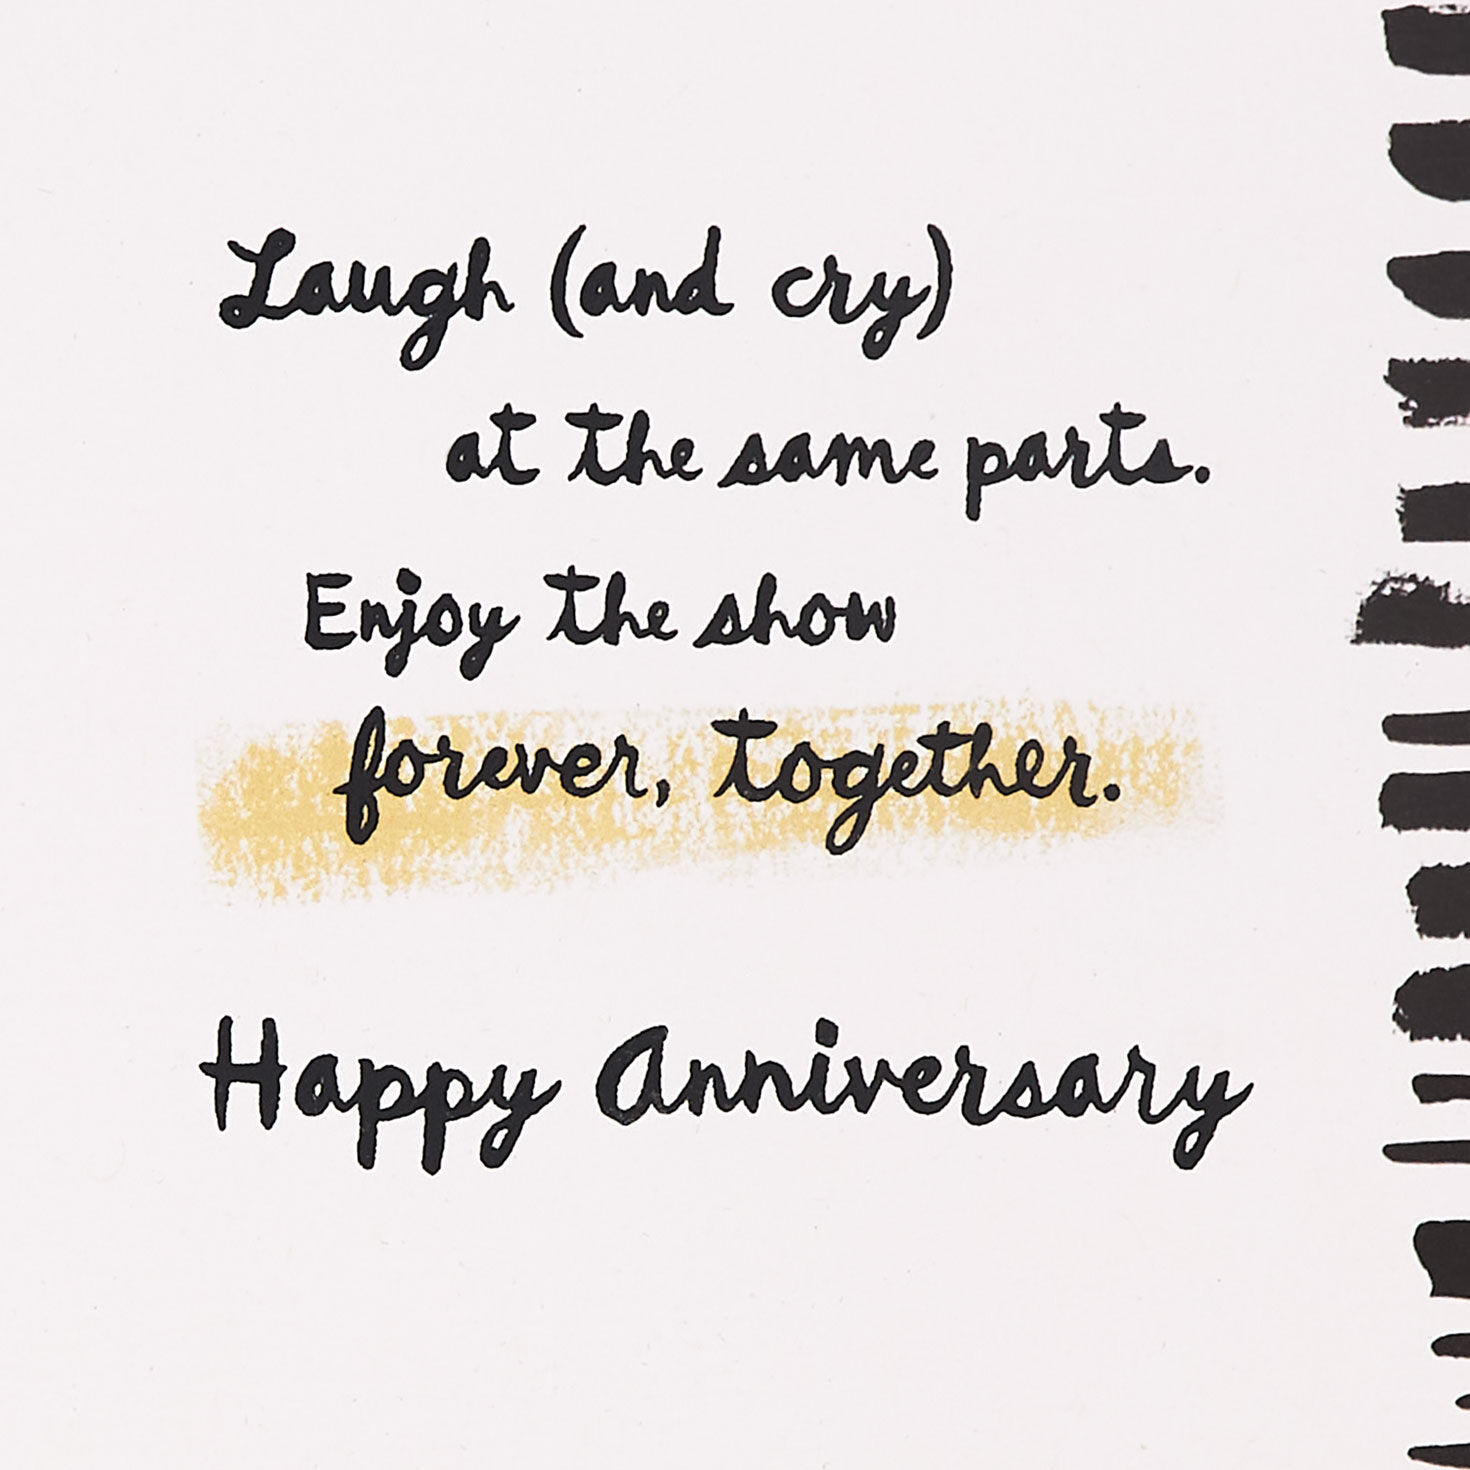 Laugh (and cry)
at the same parts.
Enjoy the show
forever, together.
Happy Anniversary